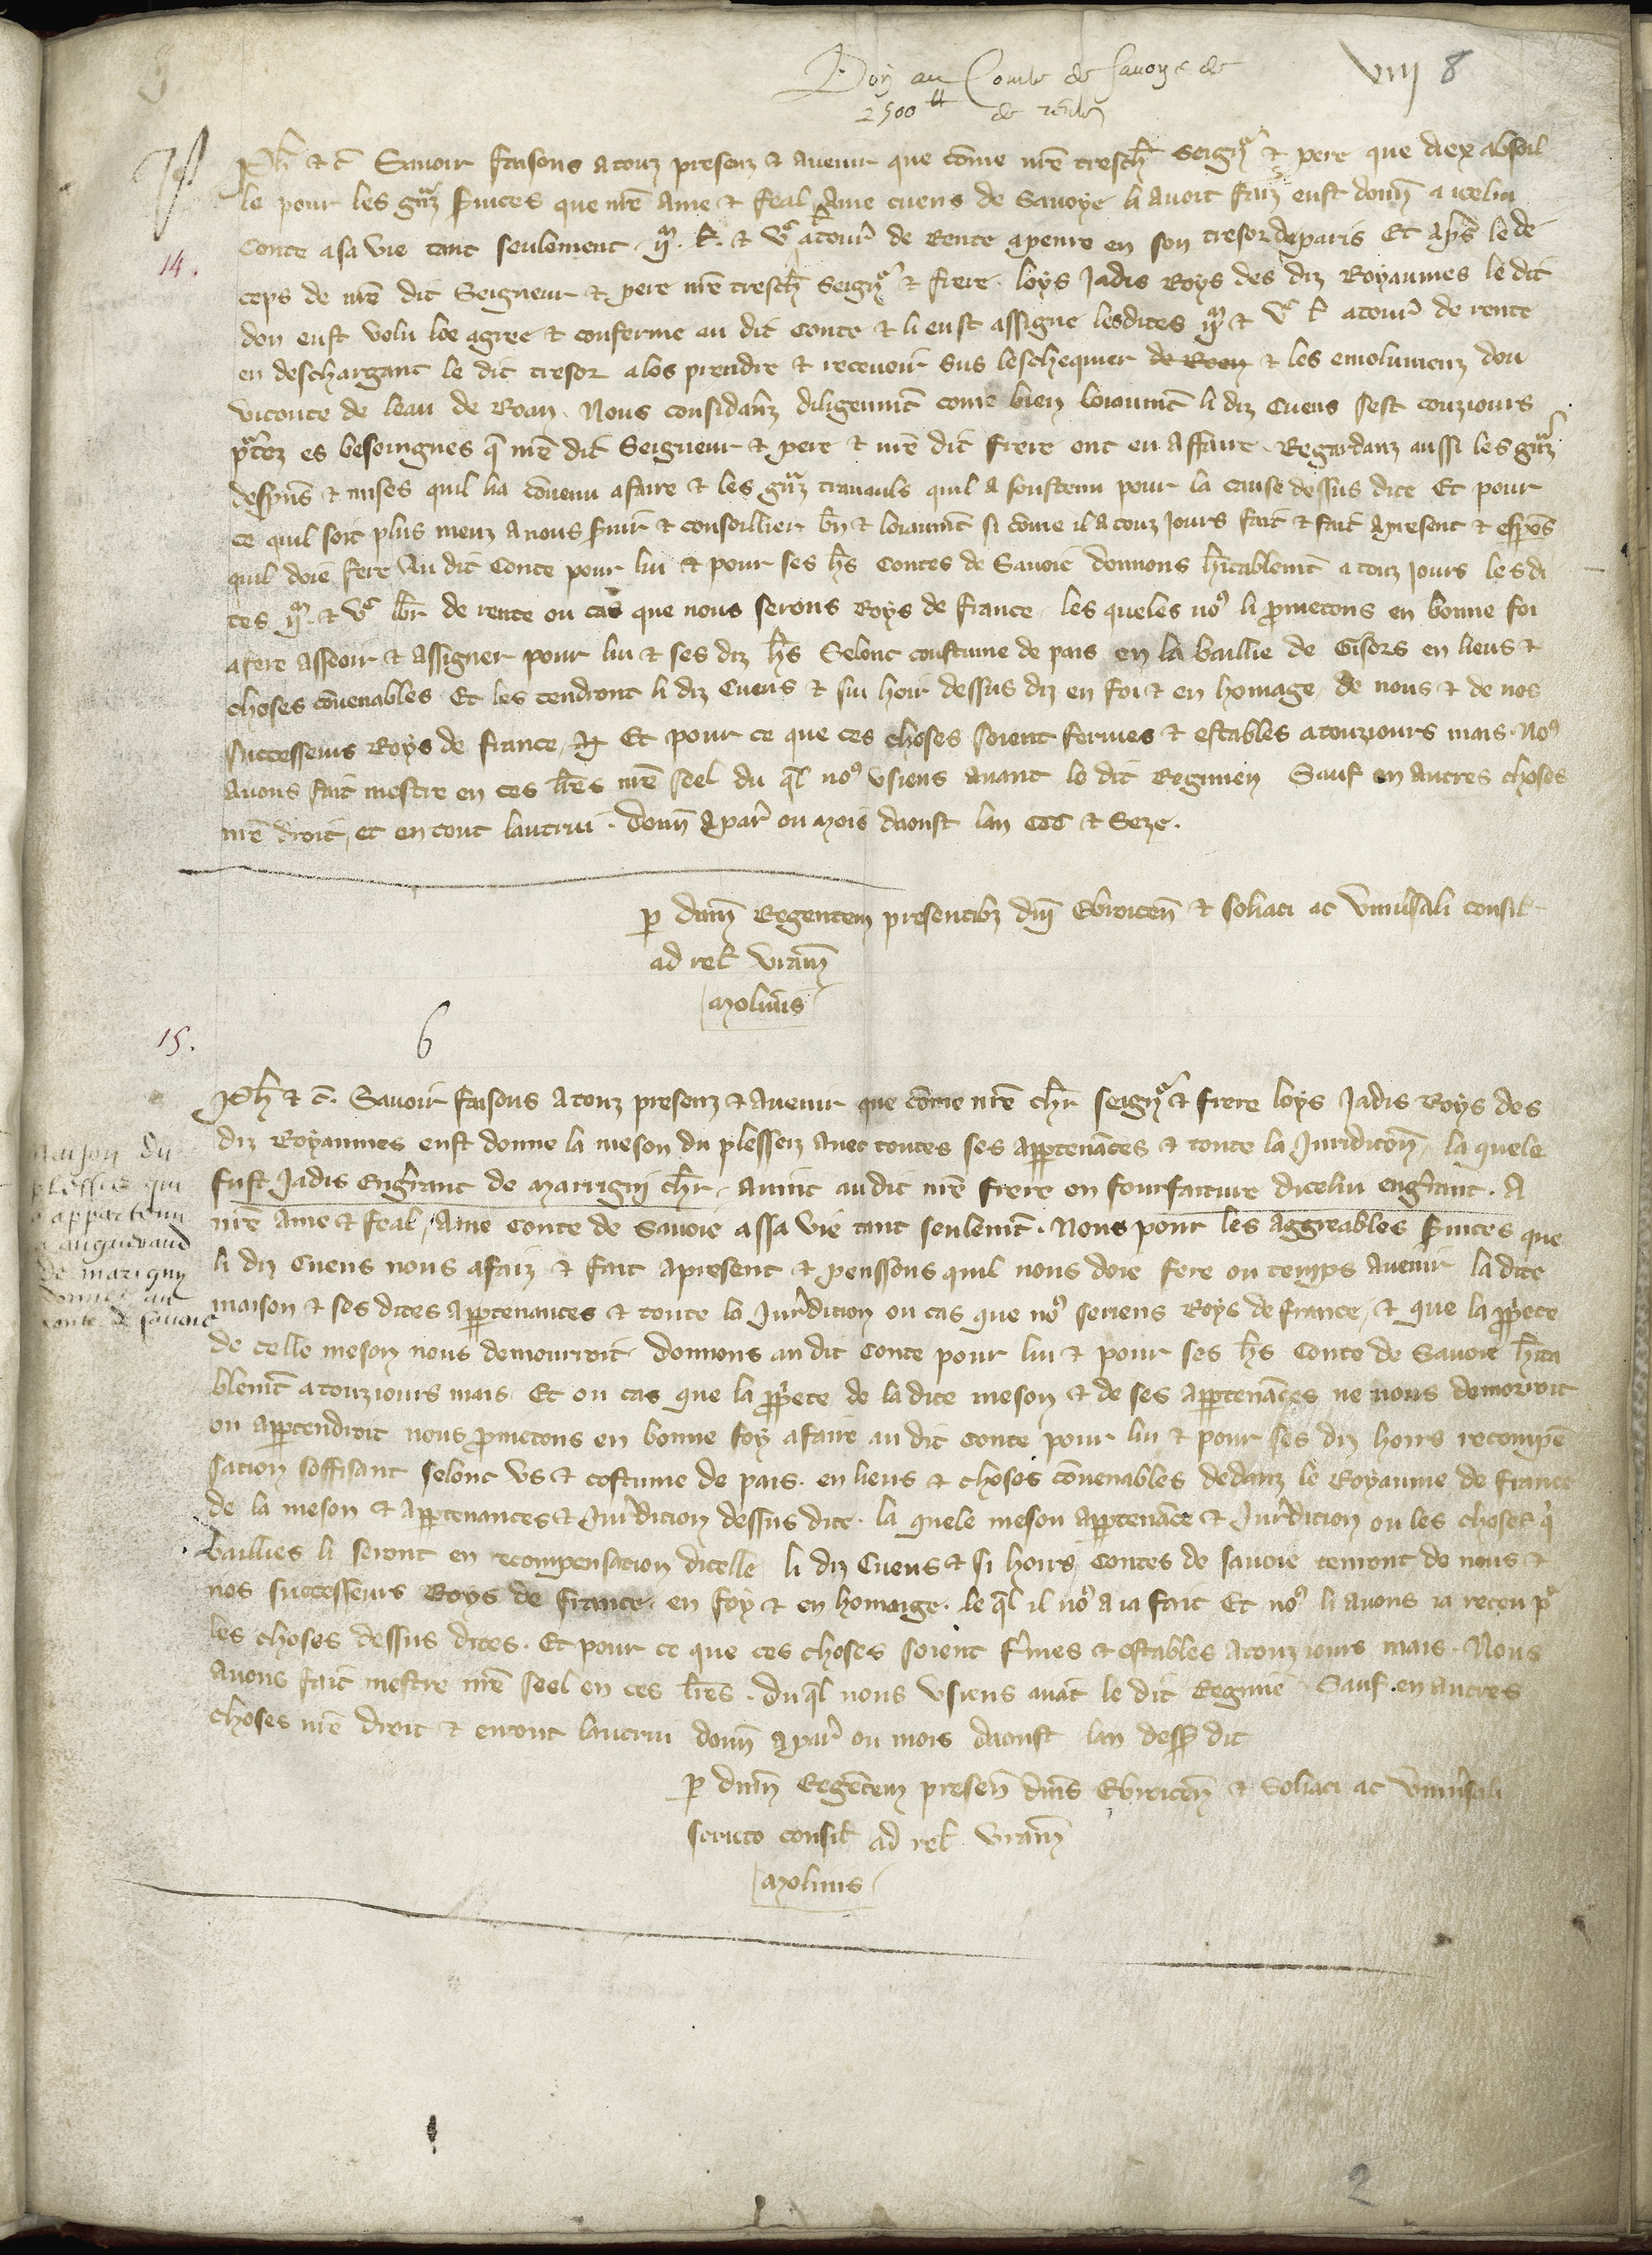 Don au Comte de Savoye de
2500 tt de rente
VIII 8
14.
Ph̄ et c̄ Savoir faisons a touz presenz et avenir que cōme nr̄e tresch̄ Seign̄r et pere que diex absoil
le pour les granz s̄vices que nr̄e ame et feal Ame cuens de Savoye li avoit faiz eust donn̄ a icelui
Conte a sa vie tant seulement .ijm. l̄. et vc atour̄ de Rente apenre en son tresor de paris Et ap̄s le de
ceps de nr̄e dit Seigneur et pere nr̄e tresch̄ Seign̄r et frere loys Jadis Roys des diz Royaumes le dit
don eust volu loe agree et conferme au dit Conte et li eust assigne lesdites ijm et vc l̄ atour̄ de rente
en deschargant le dit tresor a los prendre et recevoir sus leschequier de Roen et les emolumenz dou
viconte de leau de Roan. Nous considānz diligenm̄t come bien loiaum̄t li diz Cuens sest touziours
portez es besoingnes q̄ nr̄e dit Seigneur et pere et nr̄e dit frere ont eu affaire. Regardanz aussi les granz
despens et mises quil ha cōvenu afaire et les granz travauls quil a soustenu pour la cause dessus dite Et pour
ce quil soit plus menz a nous s̄vir et conseillier bn̄ et loiaum̄t si cōme il a touz Jours fait et fait apresent et espons
quil doie fere Au dit Conte pour lui et pour ses h̄s Contes de Savoie donnons h̄itablem̄t a touz Jours lesdi
tes ijm. et vc lb̄r de rente ou cas que nous serons Roys de france les queles no9 li p̄metons en bonne foi
a fere asseoir et assigner pour lui et ses diz h̄s Selonc coustume de pais en la baillie de Gisors en lieus et
choses cōvenables Et les tendront li diz Cuens et sui hoir dessus diz en foi et en homage de nous et de nos
successeurs Roys de france Et pour ce que ces choses soient fermes et estables a touziours mais. No9
avons fait mestre en ces lr̄es nr̄e seel du q̄l no9 usiens avant le dit Regimen Sauf en autres choses
nr̄e droit, et en tout lautrui. Donn̄ a par̄ ou mois daoust lan CCC et Seze.
p dn̄m Regentem presentib3 dn̄i Ebroicen̄ et soliaci ac univ̄sali consil̄
ad rel̄ vram̄
Molinis
15.
6
Maison du
plessis qui
a appartenu
a anguerand
de marigny
donnee au
conte de savoie
Ph̄ et c̄. Savoir faisons a touz presenz et avenir que cōme nr̄e ch̄r seign̄r et frere loys Jadis Roys des
diz Royaumes eust donne la meson du plesseiz avec toutes ses appartenāces et toute la Juridiction̄, la quele
fust Jadis Engr̄ant de Marrigni ch̄r, avint au dit nr̄e frere en fourfaiture dicelui engr̄ant. A
nr̄e ame et feal Ame Conte de Savoie assa vie tant seulem̄t. Nous pour les aggreables s̄vices que
li diz Cuens nous afaiz et fait apresent et penssons quil nous doie fere ou temps avenir la dite
maison et ses dites appartenances et toute la Jur̄dicion ou cas que no9 seriens Roys de france, et que la pp̄iete
de celle meson nous demourroit donnons au dit Conte pour lui et pour ses h̄s Conte de Savoie h̄ita
blem̄t a touziours mais Et ou cas que la pp̄iete de la dite meson et de ses appartenāces ne nous demorroit
ou appartendroit nous p̄metons en bonne foy afaire au dit Conte pour lui et pour ses diz hoirs recompē
sacion soffisant selonc us et costume de pais. en lieus et choses cōvenables dedanz le Royaume de france
de la meson et appartenances et Jur̄dicion dessus dite. la quele meson appartenāce et Jur̄dicion ou les choses q̄
baillies li seront en recompensacion dicelle li diz Cuens et si hoirs Contes de Savoie tenront de nous et
nos successeurs Roys de france. en foy et en homaige. le q̄l il no9 a ia fait Et no9 li avons ia receu pr
les choses dessus dites. Et pour ce que ces choses soient f̄mes et estables a touz iours mais. Nous
avons fait mestre nr̄e seel en ces lr̄es. du q̄l nous usiens avāt le dit Regimē Sauf en autres
choses nr̄e droit et en tout lautrui donn̄ a par̄ ou mois daoust lan dess9 dit
p dn̄m Regētem presen̄ dn̄is Ebroicen̄ et Soliaci ac univ̄sali
stricto consil̄ ad rel̄ vram̄
Molinis
2